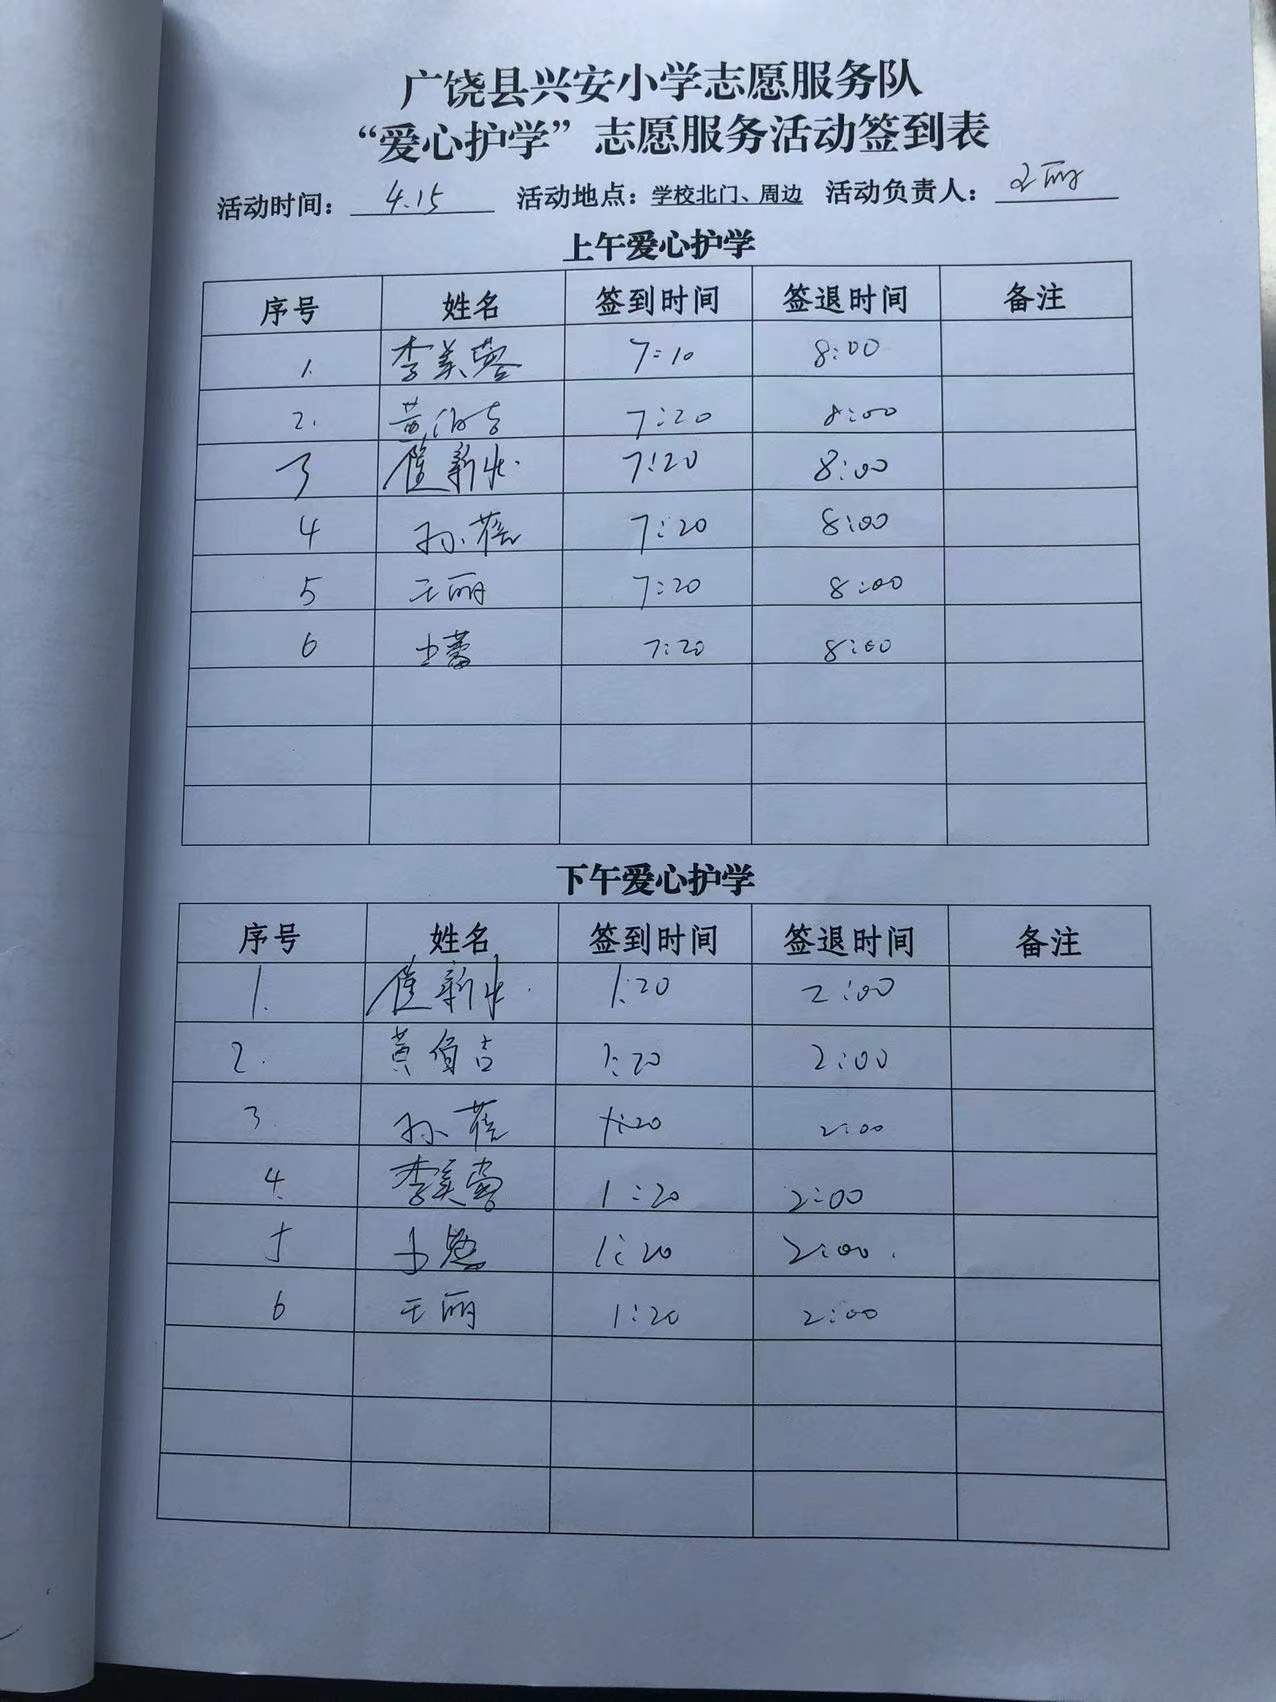 广饶县兴安小学志愿服务队
“爱心护学”志愿服务活动签到表
活动时间：4.15 活动地点：学校北门、周边 活动负责人：王丽
上午爱心护学
序号 姓名 签到时间 签退时间 备注
1. 李美蓉 7:10 8:00
2. 黄伯吉 7:20 8:00
3 崔新 7:20 8:00
4 孙蓓 7:20 8:00
5 王丽 7:20 8:00
6 王 7:20 8:00
下午爱心护学
序号 姓名 签到时间 签退时间 备注
1. 崔新 1:20 2:00
2. 黄伯吉 1:20 2:00
3 孙蓓 1:20 2:00
4. 李美蓉 1:20 2:00
5 王 1:20 2:00.
6 王丽 1:20 2:00